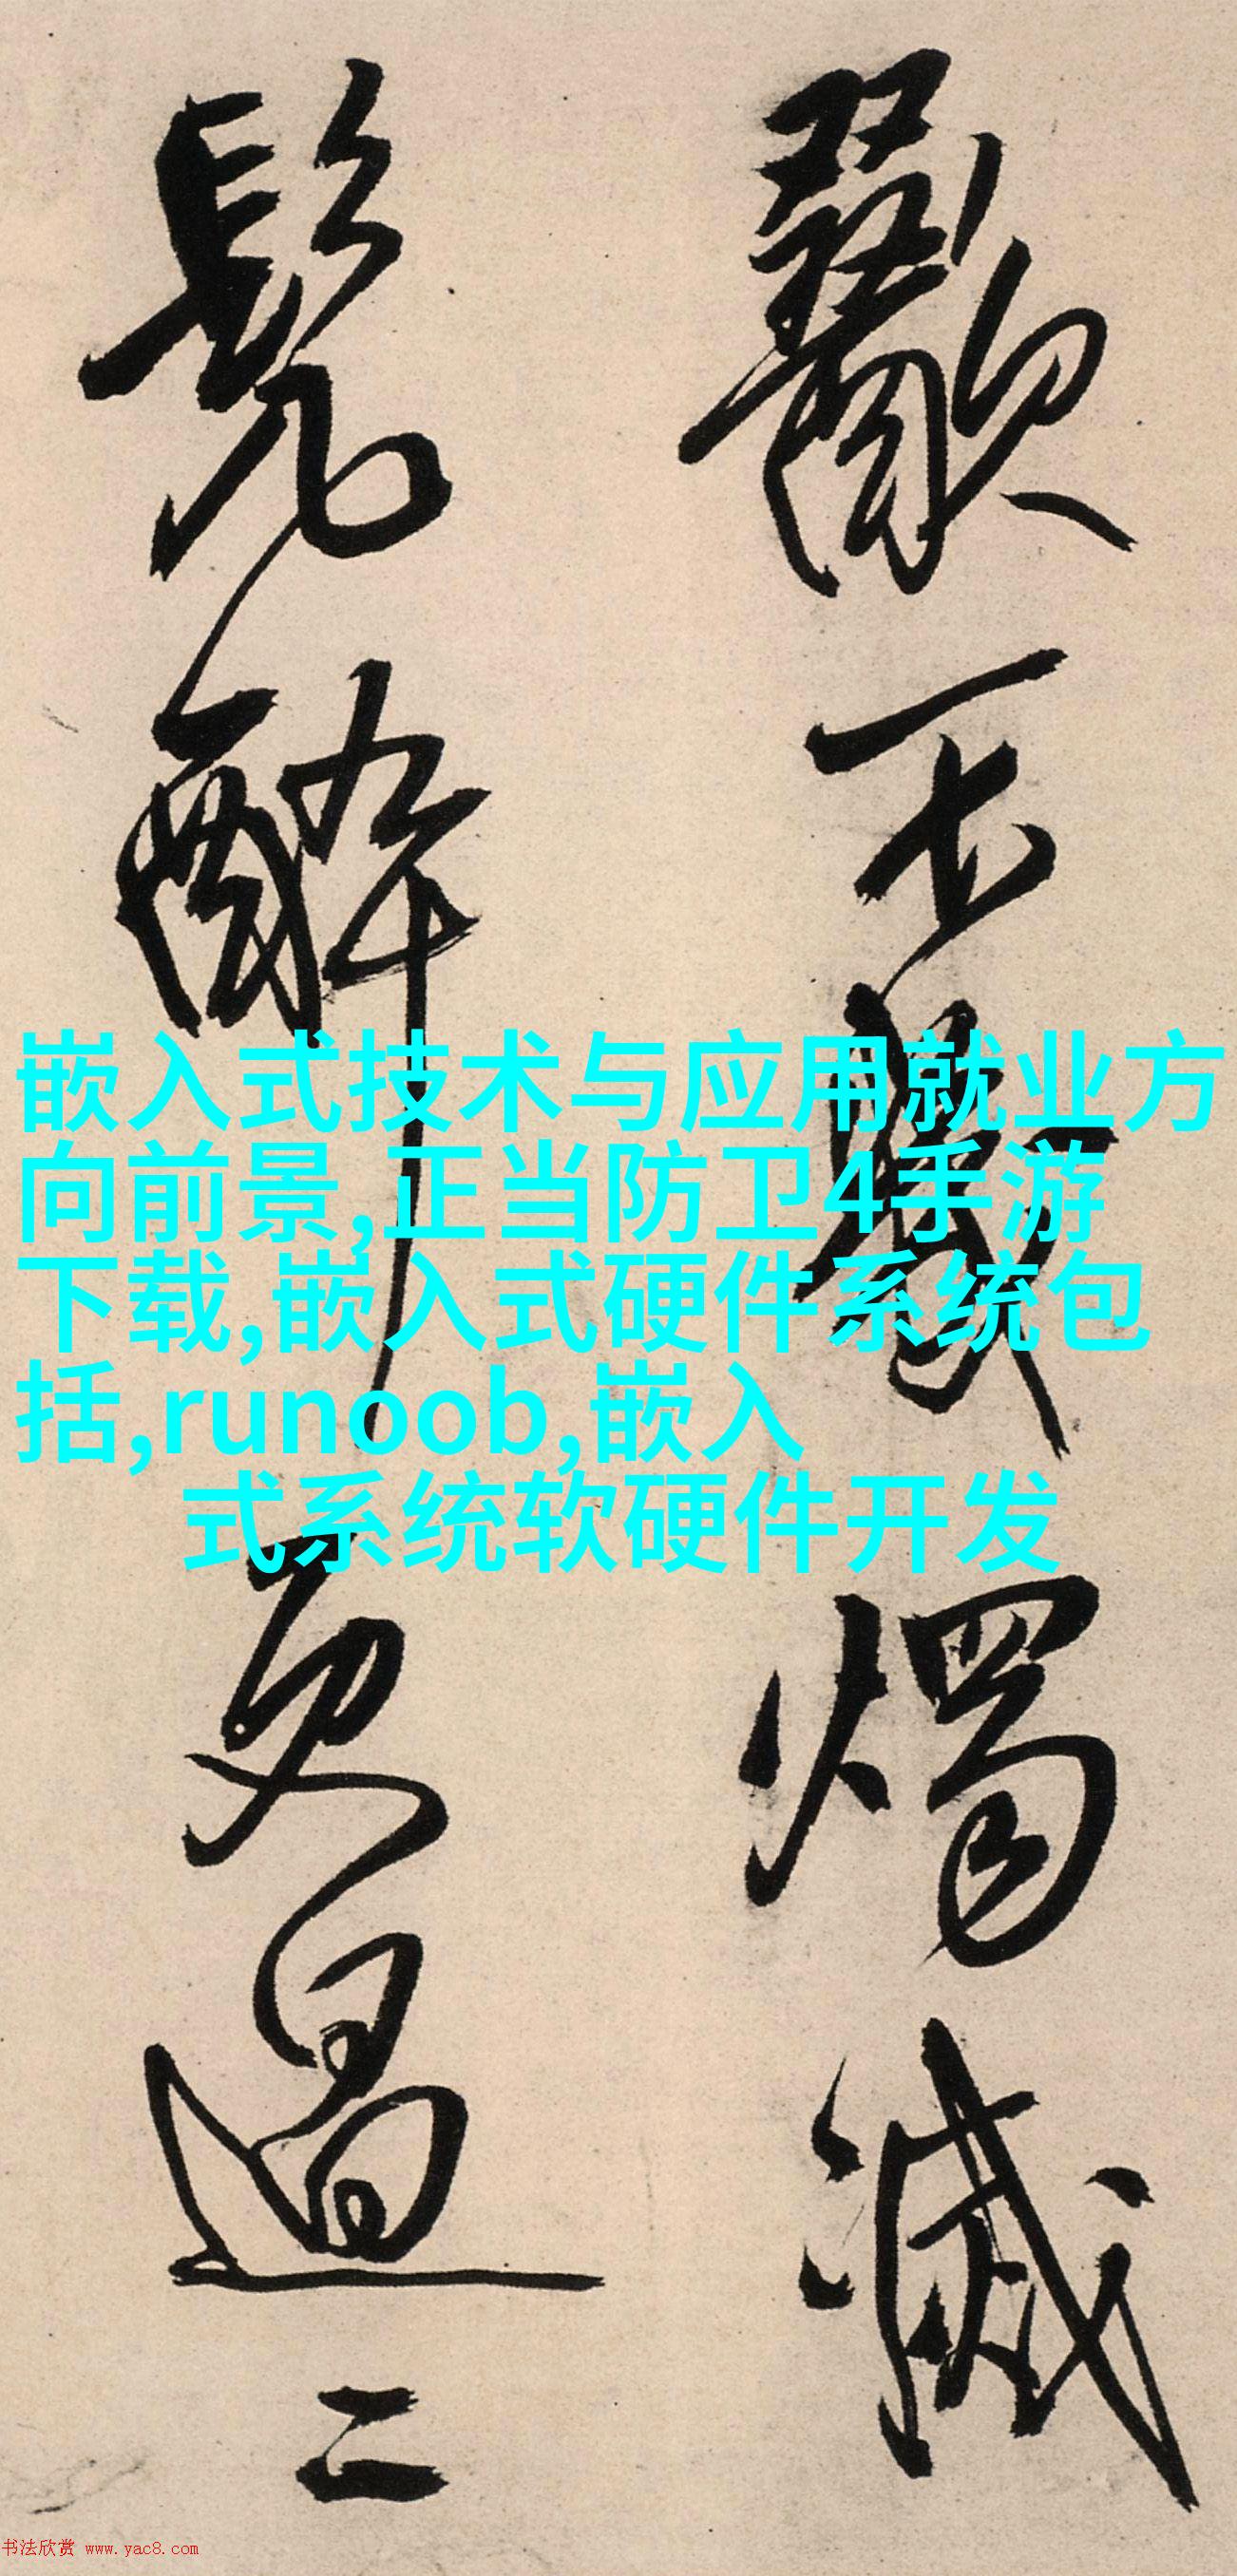 嵌入式技术与应用就业方
向前景,正当防卫4手游
下载,嵌入式硬件系统包
括,runoob,嵌入
式系统软硬件开发
烛灭
鬓醉
更过二
书法欣赏 www.yac8.com